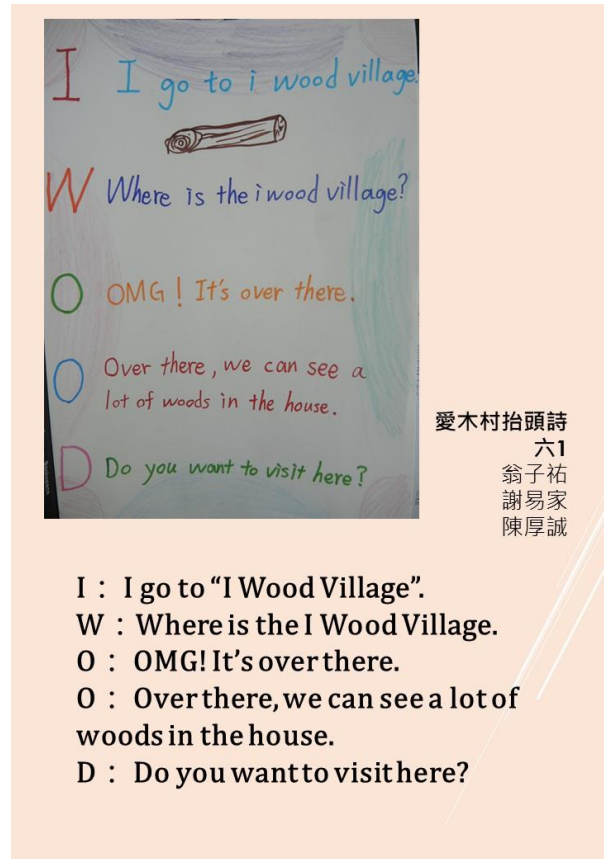 I I go to i wood village.
W Where is the i wood village?
O OMG! It's over there.
O Over there, we can see a
lot of woods in the house.
D Do you want to visit here?
愛木村抬頭詩
六1
翁子祐
謝易家
陳厚誠
I：I go to “I Wood Village”.
W：Where is the I Wood Village.
O：OMG! It’s over there.
O：Over there, we can see a lot of
woods in the house.
D：Do you want to visit here?